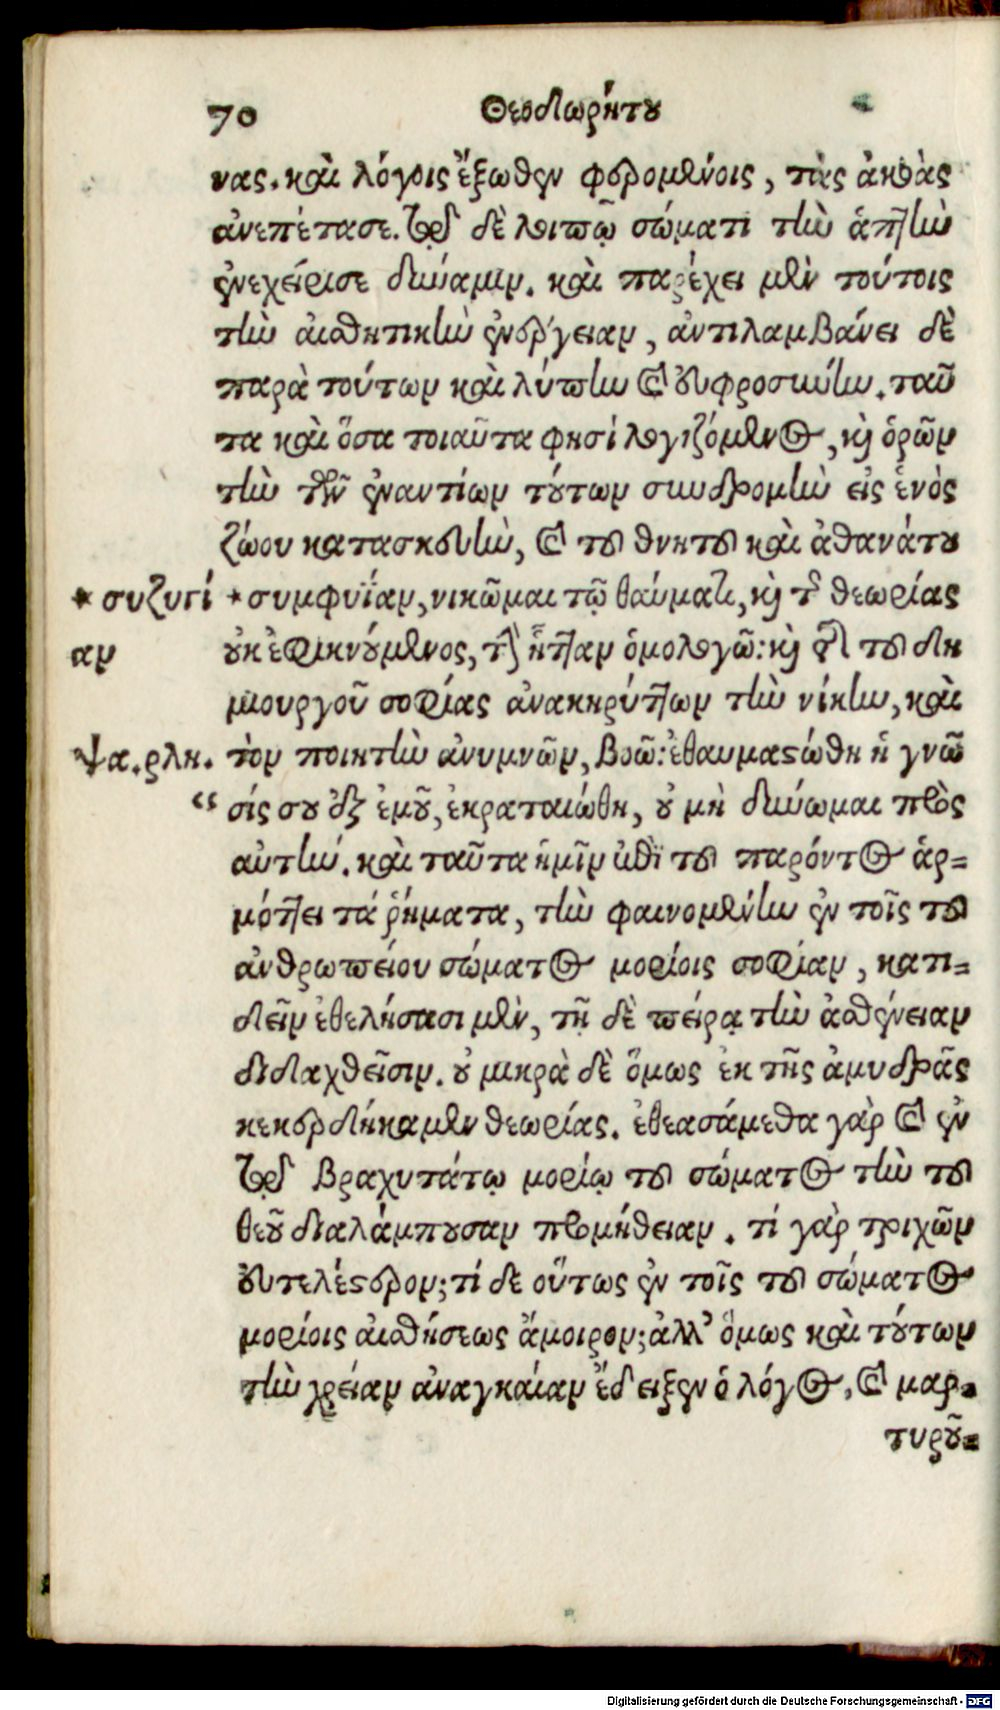 70 Θεοδωρήτου
νας. καὶ λόγοις ἔξωθεν φερομένοις, τὰς ἀκοὰς
ἀνεπέτασε. τῷ δὲ λοιπῷ σώματι τὴν ἁπτὴν
ἐνεχείρισε δύναμιν. καὶ παρέχει μὲν τούτοις
τὴν αἰσθητικὴν ἐνέργειαν, ἀντιλαμβάνει δὲ
παρὰ τούτων καὶ λύπην καὶ εὐφροσύνην. ταῦ
τα καὶ ὅσα τοιαῦτα φησὶ λογιζόμενος, καὶ ὁρῶν
τὴν τῶν ἐναντίων τούτων συνδρομὴν εἰς ἑνὸς
ζώου κατασκευὴν, καὶ τοῦ θνητοῦ καὶ ἀθανάτου
* συζυγί * συμφυΐαν, νικῶμαι τῷ θαύματι, καὶ τῆς θεωρίας
αν οὐκ ἐφικνούμενος, τὴν ἧτταν ὁμολογῶ: καὶ τῆς τοῦ δη
μιουργοῦ σοφίας ἀνακηρύττων τὴν νίκην, καὶ
Ψα. ρλη. τὸν ποιητὴν ἀνυμνῶν, βοῶ: ἐθαυμαστώθη ἡ γνῶ
“ σίς σου ἐξ ἐμοῦ, ἐκραταιώθη, οὐ μὴ δύνωμαι πρὸς
αὐτήν. καὶ ταῦτα ἡμῖν ἐπὶ τοῦ παρόντος ἁρ-
μόττει τὰ ῥήματα, τὴν φαινομένην ἐν τοῖς τοῦ
ἀνθρωπείου σώματος μορίοις σοφίαν, κατι-
δεῖν ἐθελήσασι μὲν, τῇ δὲ πείρᾳ τὴν ἀσθένειαν
διδαχθεῖσιν. οὐ μικρὰ δὲ ὅμως ἐκ τῆς ἀμυδρᾶς
κεκερδήκαμεν θεωρίας. ἐθεασάμεθα γὰρ καὶ ἐν
τῷ βραχυτάτῳ μορίῳ τοῦ σώματος τὴν τοῦ
θεοῦ διαλάμπουσαν προμήθειαν. τί γὰρ τριχῶν
εὐτελέστερον; τί δε οὕτως ἐν τοῖς τοῦ σώματος
μορίοις αἰσθήσεως ἄμοιρον; ἀλλ' ὅμως καὶ τούτων
τὴν χρείαν ἀναγκαίαν ἔδειξεν ὁ λόγος, καὶ μαρ-
τυροῦ-
Digitalisierung gefördert durch die Deutsche Forschungsgemeinschaft - DFG